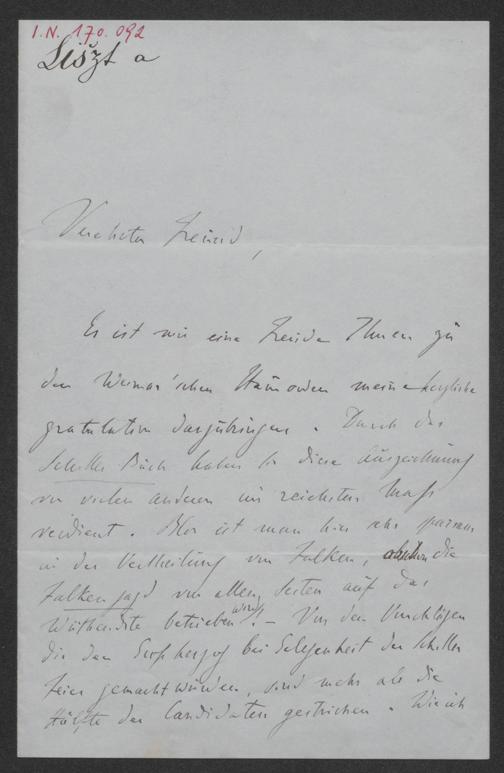 I.N. 170.092
Liszt a
Verehrter Freund,
Es ist mir eine Freude Ihnen zu
dem Weimar'schen Hausorden meine herzliche
gratulation darzubringen. Durch das
Schiller Buch haben Sie diese Auszeichnung
vor vielen anderen im reichsten Maß
verdient. Blos ist man hier sehr sparsam
in der Vertheilung von Falken, obschon die
Falkenjagd von allen Seiten auf das
Wüthendste betrieben wird. – Von den Vorschlägen
die dem Großherzog bei Gelegenheit der Schiller
Feier gemacht würden, sind mehr als die
Hälfte der Candidaten gestrichen. Wie ich